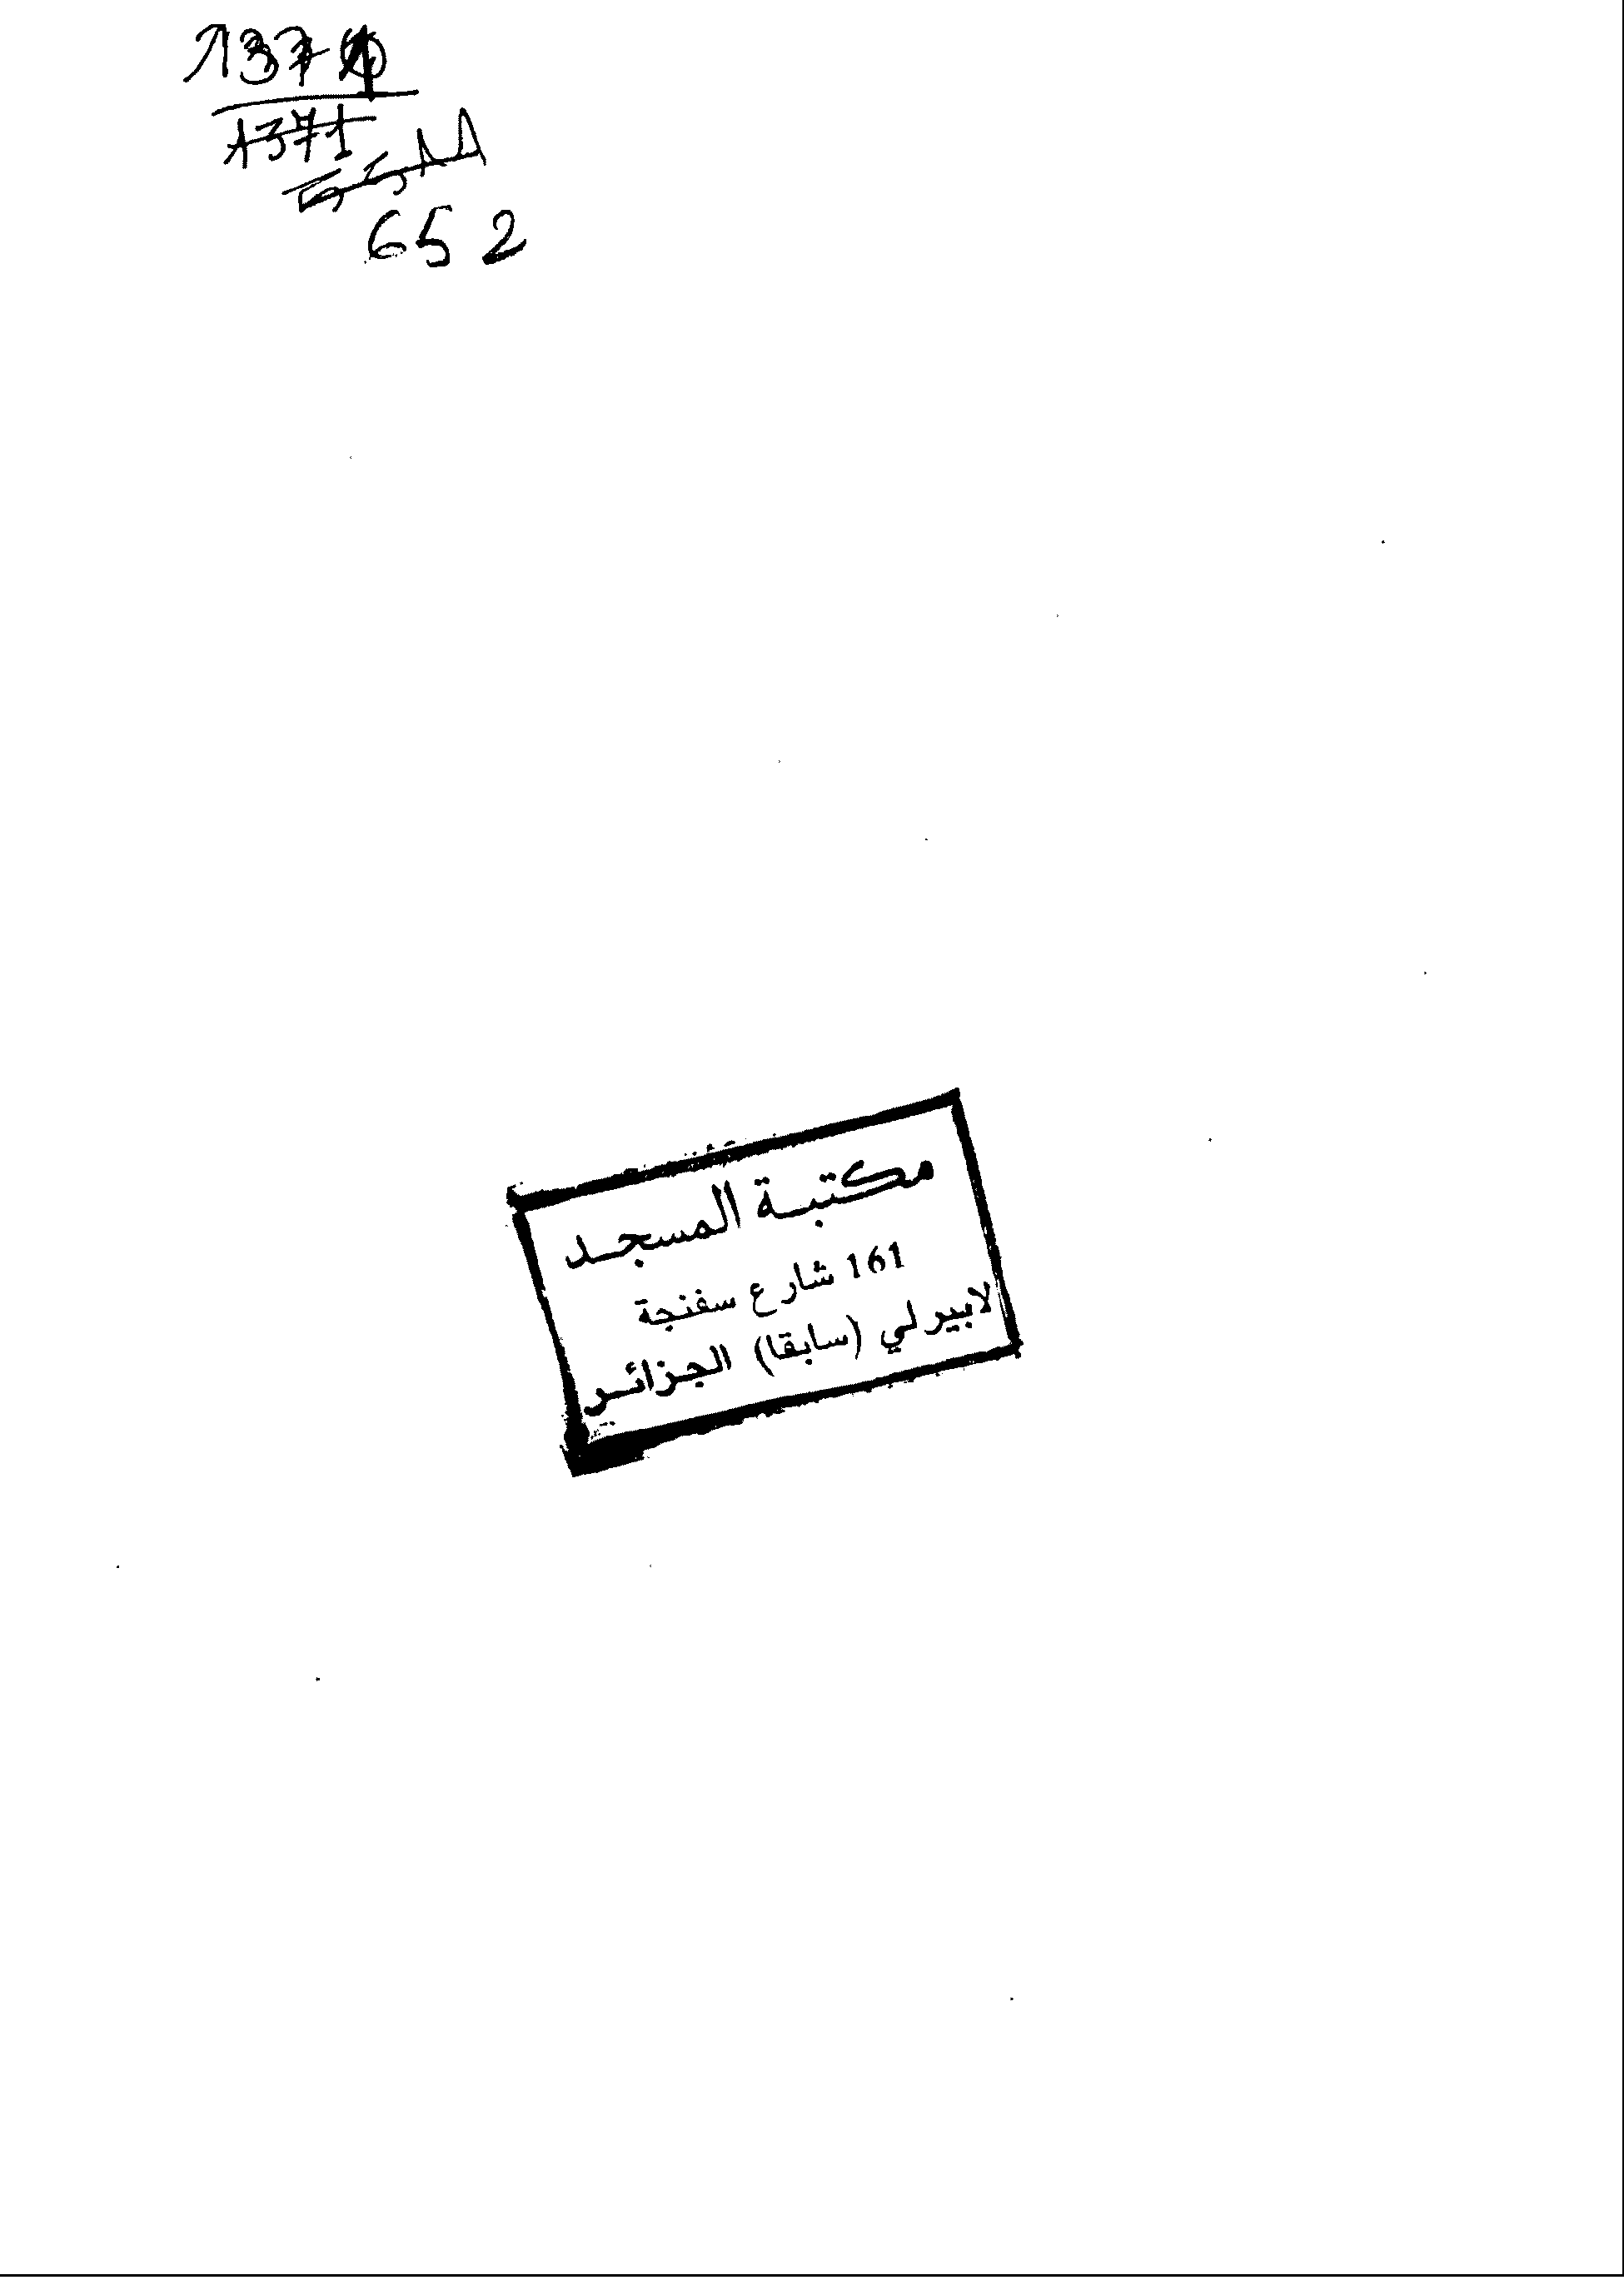 1371
652
مكتبة المسجد
161 شارع سفنجة
لابيرلي (سابقا) الجزائر